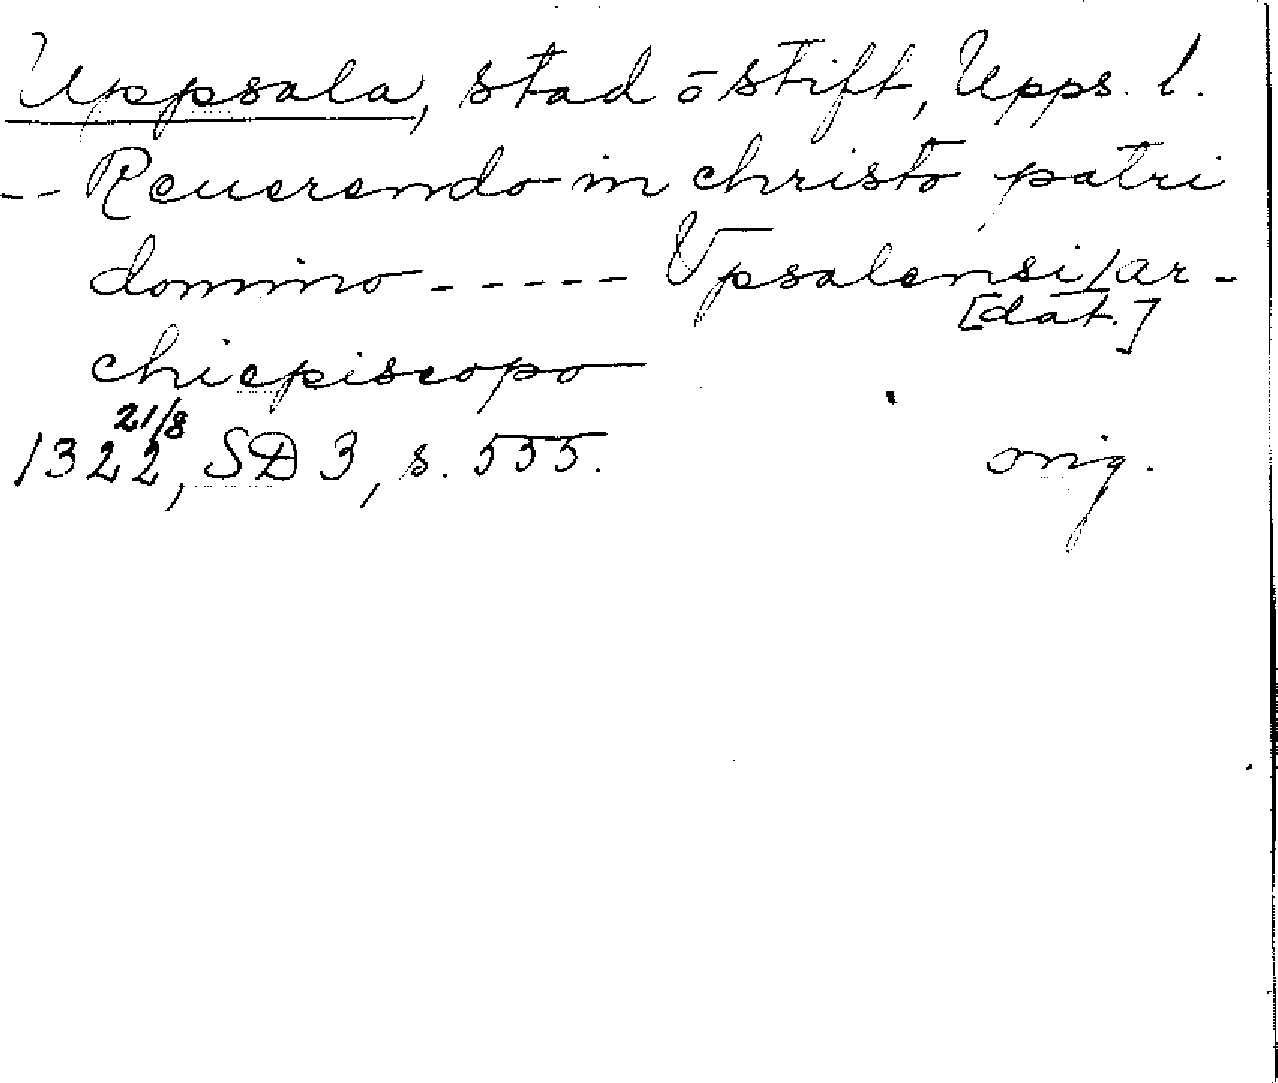 Uppsala, stad o stift, Upps. l.
-- Reuerendo in christo patri
domino ----- Vpsalensi/ar-
[dat.]
chiepiscopo
21/8
1322, SD 3, s. 555. orig.